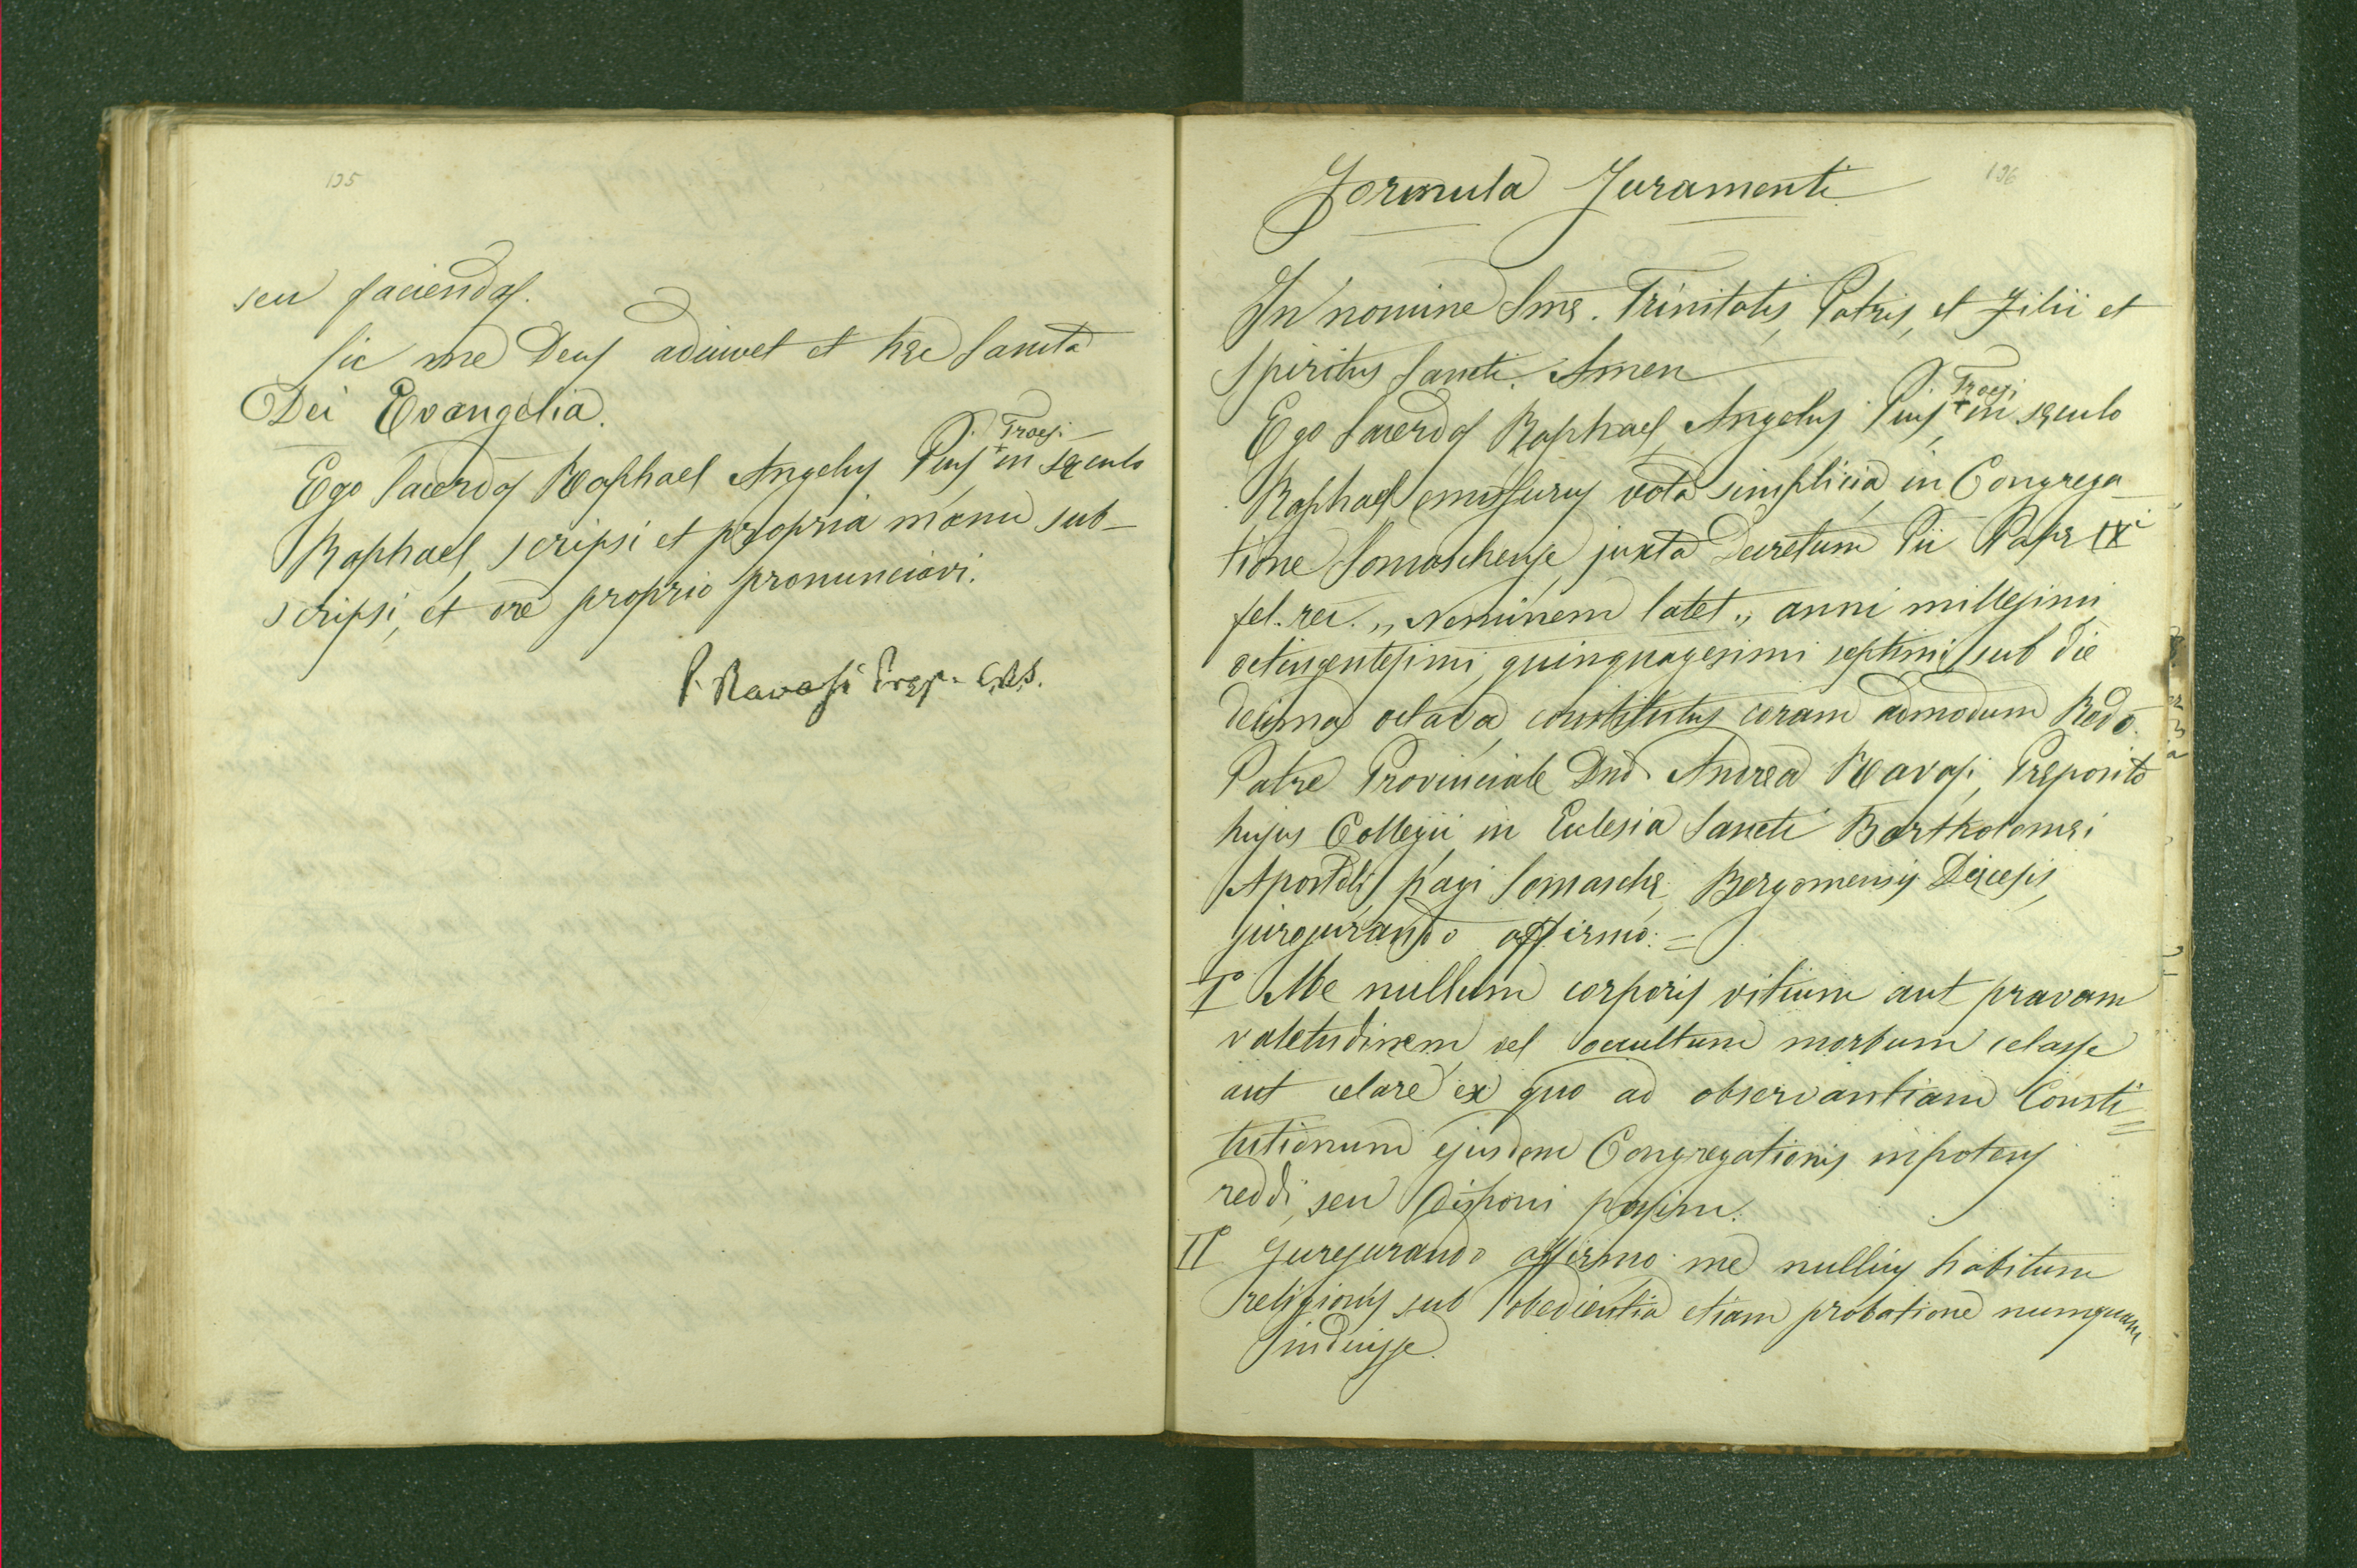 135
seu faciendas.
Sic me Deus adiuvet et hæc Sancta
Dei Evangelia.
Ego Sacerdos Raphael Angelus Pius + in sæculo
Troesi
Raphael, scripsi et propria manu sub-
scripsi, et ore proprio pronunciavi.
P. Ravasi Præp. C.R.S.
136
Formula Juramenti
In nomine Smæ. Trinitatis, Patris, et Filii et
Spiritus Sancti. Amen
Ego Sacerdos Raphael Angelus Pius + in sæculo
Troesi
Raphael emissurus vota simplicia in Congrega-
tione Somaschense, juxta Decretum Pii Papæ IXi
fel. rec. „Neminem latet„ anni millesimi
octingentesimi, quinquagesimi septimi sub die
decima octava, constitutus coram admodum Redo.
Patre Provinciale Dno. Andrea Ravasi, Præposito
hujus Collegii in Eclesia Sancti Bartholomæi
Apostoli, pagi Somaschæ, Bergomensis Diœcesis,
jurejurando affirmo: =
I° Me nullum corporis vitium aut pravam
valetudinem vel occultum morbum celasse
aut celare ex quo ad observantiam Consti=
tutionum ejusdem Congregationis impotens
reddi, seu disponi possim.
II° Jurejurando affirmo me nullius habitum
religionis sub obedientia etiam probatione numquam
induisse.